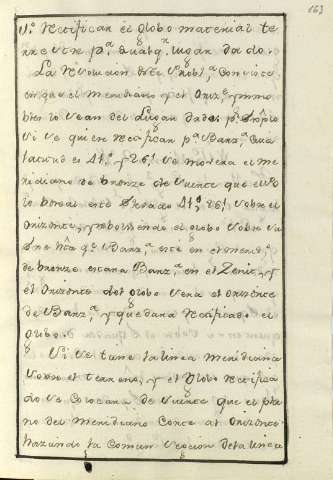 163
1.º Rectificar el Globo material te
rrestre p.ª qualq.r lugar dado.
La resolucion deste Probl.ª consiste
en que el meridiano y el Orizonte
bles lo sean del Lugar dado: p.r exemplo
si se quiere rectificar p.ª Barz.ª cuia
latitud es 41.º y 26.' se movera el me
ridiano de bronze de suerte que el Po
lo boreal este elevado 41.º 26.' sobre el
Orizonte, y rebolviendo el globo sobre su
exe hta q.e Barz.ª este en el merid.º
de bronze estara Barz.ª en el Zenit, y
el Orizonte del globo sera el orizonte
de Barz.ª y quedara rectificado el
globo.
Si se tome la linea meridiana
sobre el terreno, y el Globo rectifica
do se colocara de suerte que el pla
no del meridiano corte al orizonte
haziendo la comun seccion de la linea